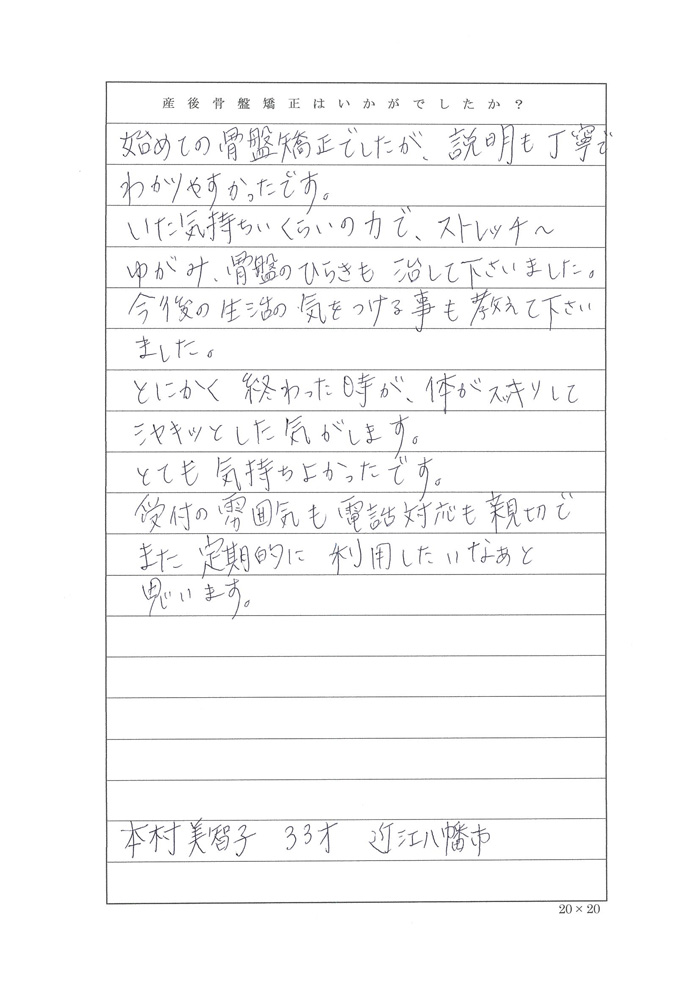 産後骨盤矯正はいかがでしたか？
始めての骨盤矯正でしたが、説明も丁寧で
わかりやすかったです。
いた気持ちいくらいの力で、ストレッチ～
ゆがみ、骨盤のひらきも治して下さいました。
今後の生活の気をつける事も教えて下さい
ました。
とにかく終わった時が、体がスッキリして
シャキッとした気がします。
とても気持ちよかったです。
受付の雰囲気も電話対応も親切で
また定期的に利用したいなぁと
思います。
本村美智子 33才 近江八幡市
20×20